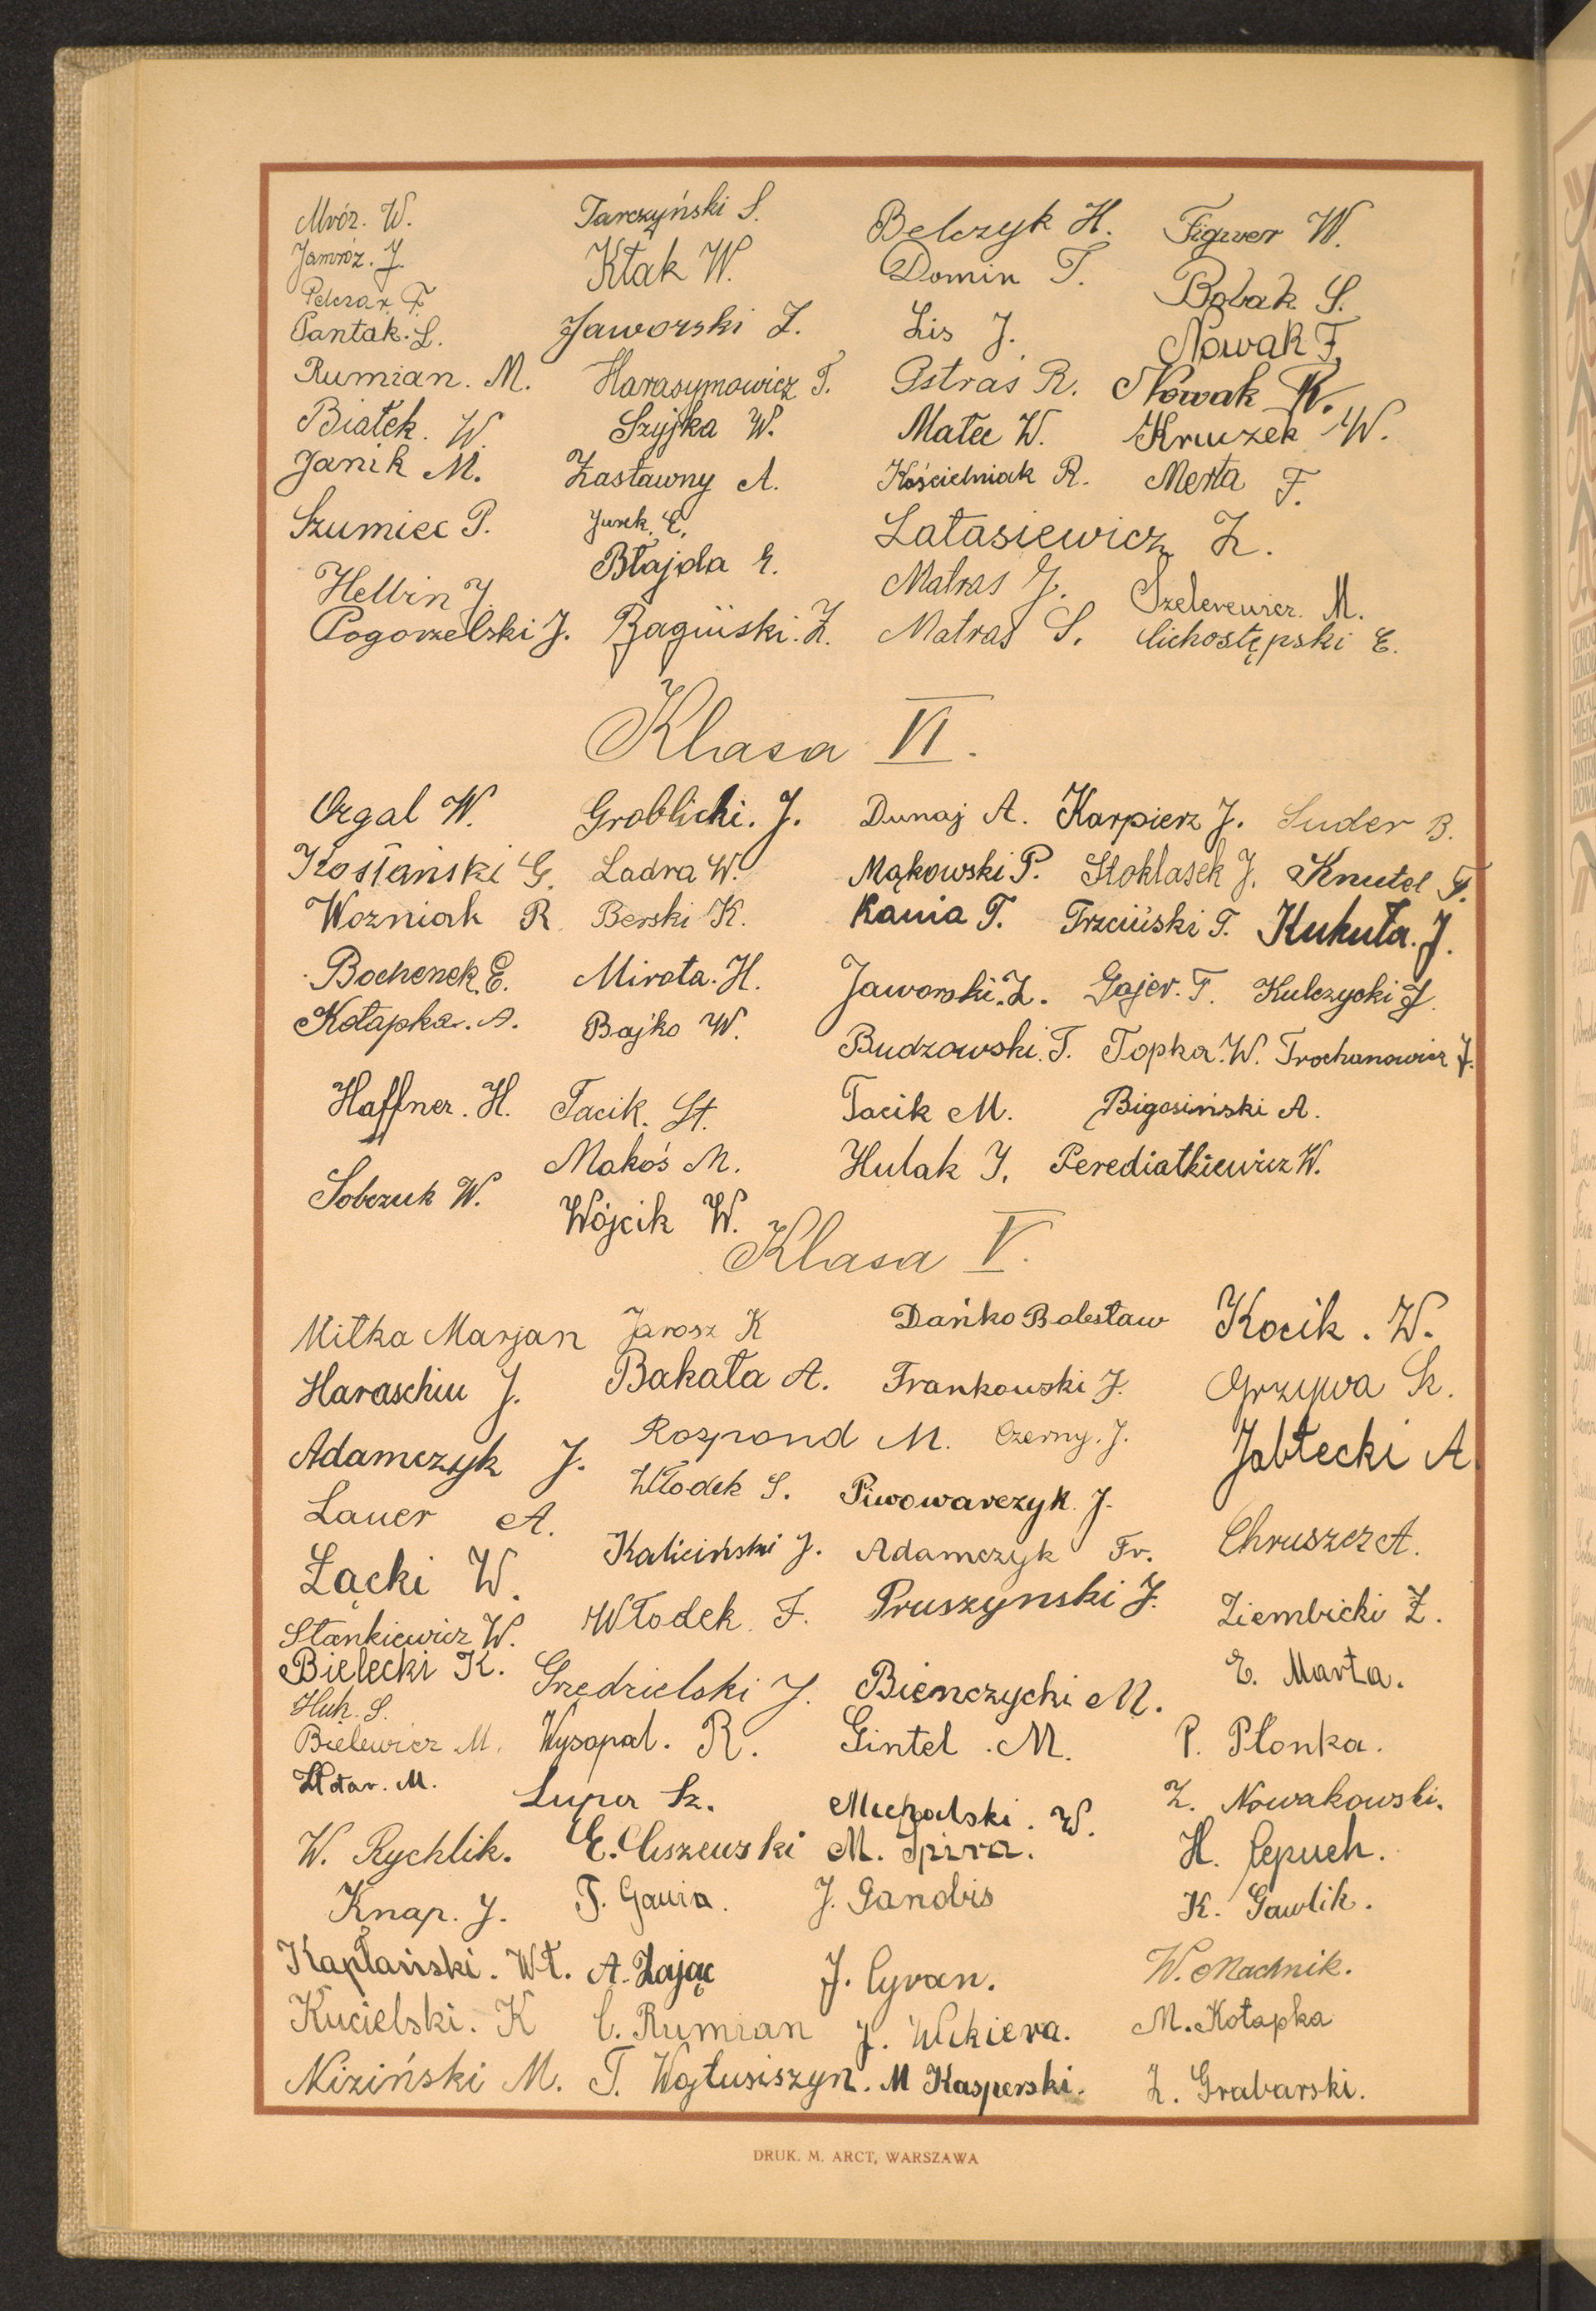 Mróz. W. Tarczyński S. Belczyk H. Figwer W.
Jamróz. J. Kłak W. Domin T. Bobak S.
Pelczar. F. Jaworski Z. Lis J. Nowak F.
Pantak. L. Harasymowicz T. Ostras R. Nowak K.
Rumian. M. Szyjka W. Małec W. Kruczek W.
Białek. W. Zastawny A. Kościelniak R. Merta F.
Janik M. Jurek. E. Latasiewicz Z.
Szumiec P. Błajda E. Matras J. M.
Helbin J. Matras S. Cichostępski E.
Pogorzelski J. Z.
Klasa VI.
Orgal W. Groblicki. J. Dunaj A. Karpierz J. Suder B.
Kosłański G. Ladra W. Mąkowski P. Stoklasek J. Knutel F.
Wozniak R. Berski K. Kania T. Trzciński T. Kukuła. J.
Bochenek. E. Mirota. H. Jaworski. Z. Gajer. T. Kulczycki J.
Kołapka. A. Bajko W. Budzowski. T. Topka. W. Trochanowicz J.
Haffner. H. Tacik. St. Tacik M. Bigosiński A.
Sobczuk W. Makoś M. Hulak J. Perediatkiewicz W.
Wójcik W.
Klasa V.
Mitka Marjan Jarosz K Dańko Bolesław Kocik. W.
Haraschin J. Bakała A. Frankowski J. Grzywa St.
Adamczyk J. Rospond M. Czerny. J. Jabłecki A.
Lauer A. Włodek S. Piwowarczyk J. Chruszcz A.
Łącki W. Kaliciński J. Adamczyk Fr. Ziembicki Z.
Stankiewicz W. Włodek F. Pruszynski J. E. Marta.
Bielecki K. Grzedzielski J. Bienczycki M. P. Płonka.
Huk. S. Wysopal. R. Gintel. M. Z. Nowakowski.
Bielewicz M. Lupa Sz. Michalski. W. H. Cepuch.
M. E. Olszewski M. Spira. K. Gawlik.
W. Rychlik. T. Gawia. J. Gandbis W. Machnik.
Knap. J. A. Zając J. Cyran. M. Kołapka
Kapłański. Wł. C. Rumian J. Wikiera. Z. Grabarski.
Kucielski. K T. Wojtusiszyn. M Kasperski.
Niziński M.
DRUK. M. ARCT, WARSZAWA